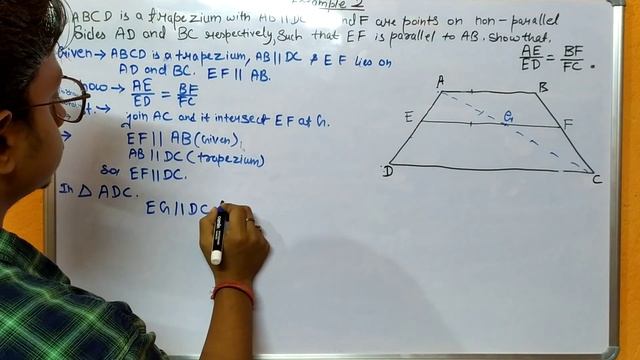 Example 2
ABCD is a trapezium with AB || DC and F are points on non-parallel
Sides AD and BC respectively, Such that EF is parallel to AB. Show that
AE/ED = BF/FC.
Given → ABCD is a trapezium, AB || DC & EF lies on
AD and BC. EF || AB.
how → AE/ED = BF/FC
t. → join AC and it intersect EF at G.
→ EF || AB (Given)
AB || DC (trapezium)
So, EF || DC.
In △ ADC.
EG || DC
A
B
E
G
F
D
C